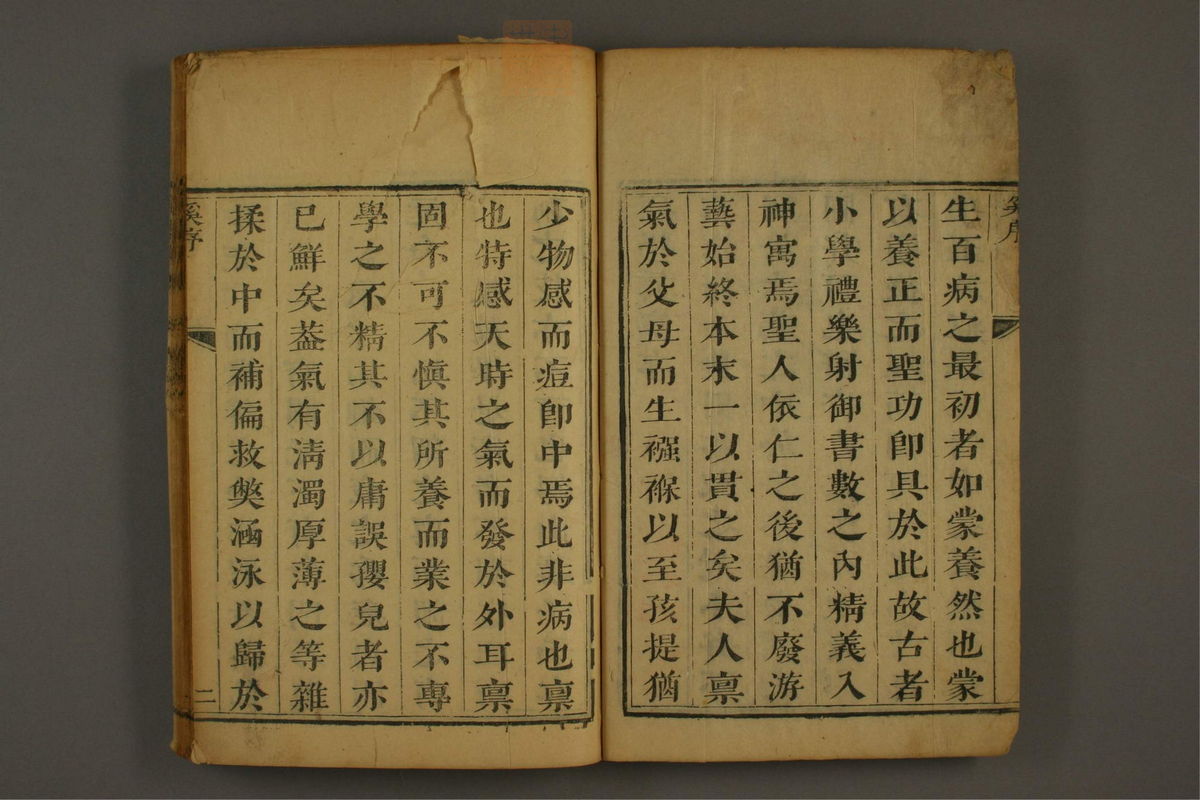 生百病之最初者如蒙養然也蒙
以養正而聖功卽具於此故古者
小學禮樂射御書數之內精義入
神寓焉聖人依仁之後猶不廢游
藝始終本末一以貫之矣夫人禀
氣於父母而生襁褓以至孩提猶
少物感而痘卽中焉此非病也禀
也特感天時之氣而發於外耳禀
固不可不愼其所養而業之不專
學之不精其不以庸誤孾兒者亦
已鮮矣葢氣有淸濁厚薄之等雜
揉於中而補偏救獘涵泳以歸於
奚序
二